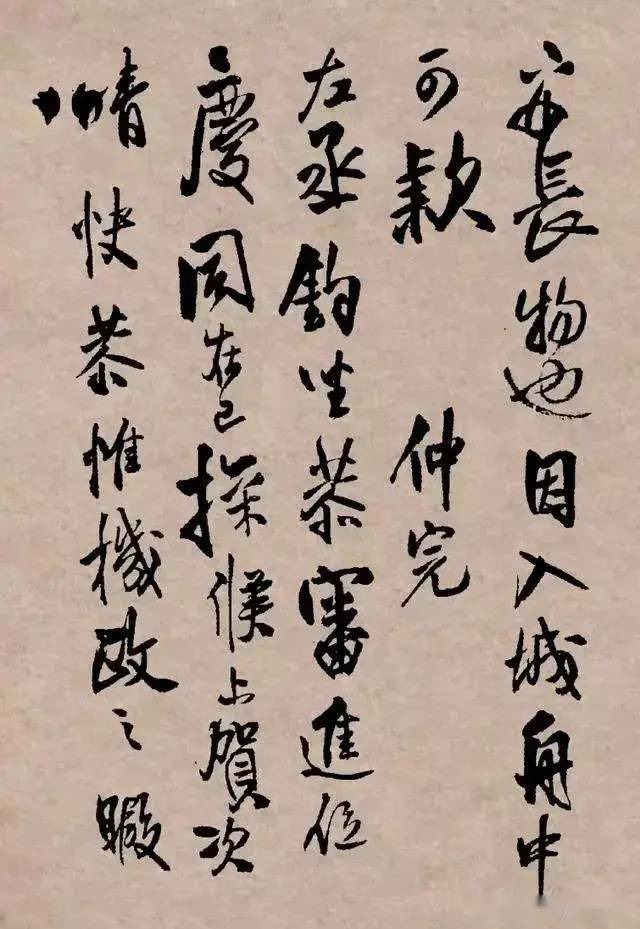 長物也因入城舟中
可款 仲完
左丞鈞坐恭審進位
慶同在已探候上賀次
晴快恭惟機政之暇